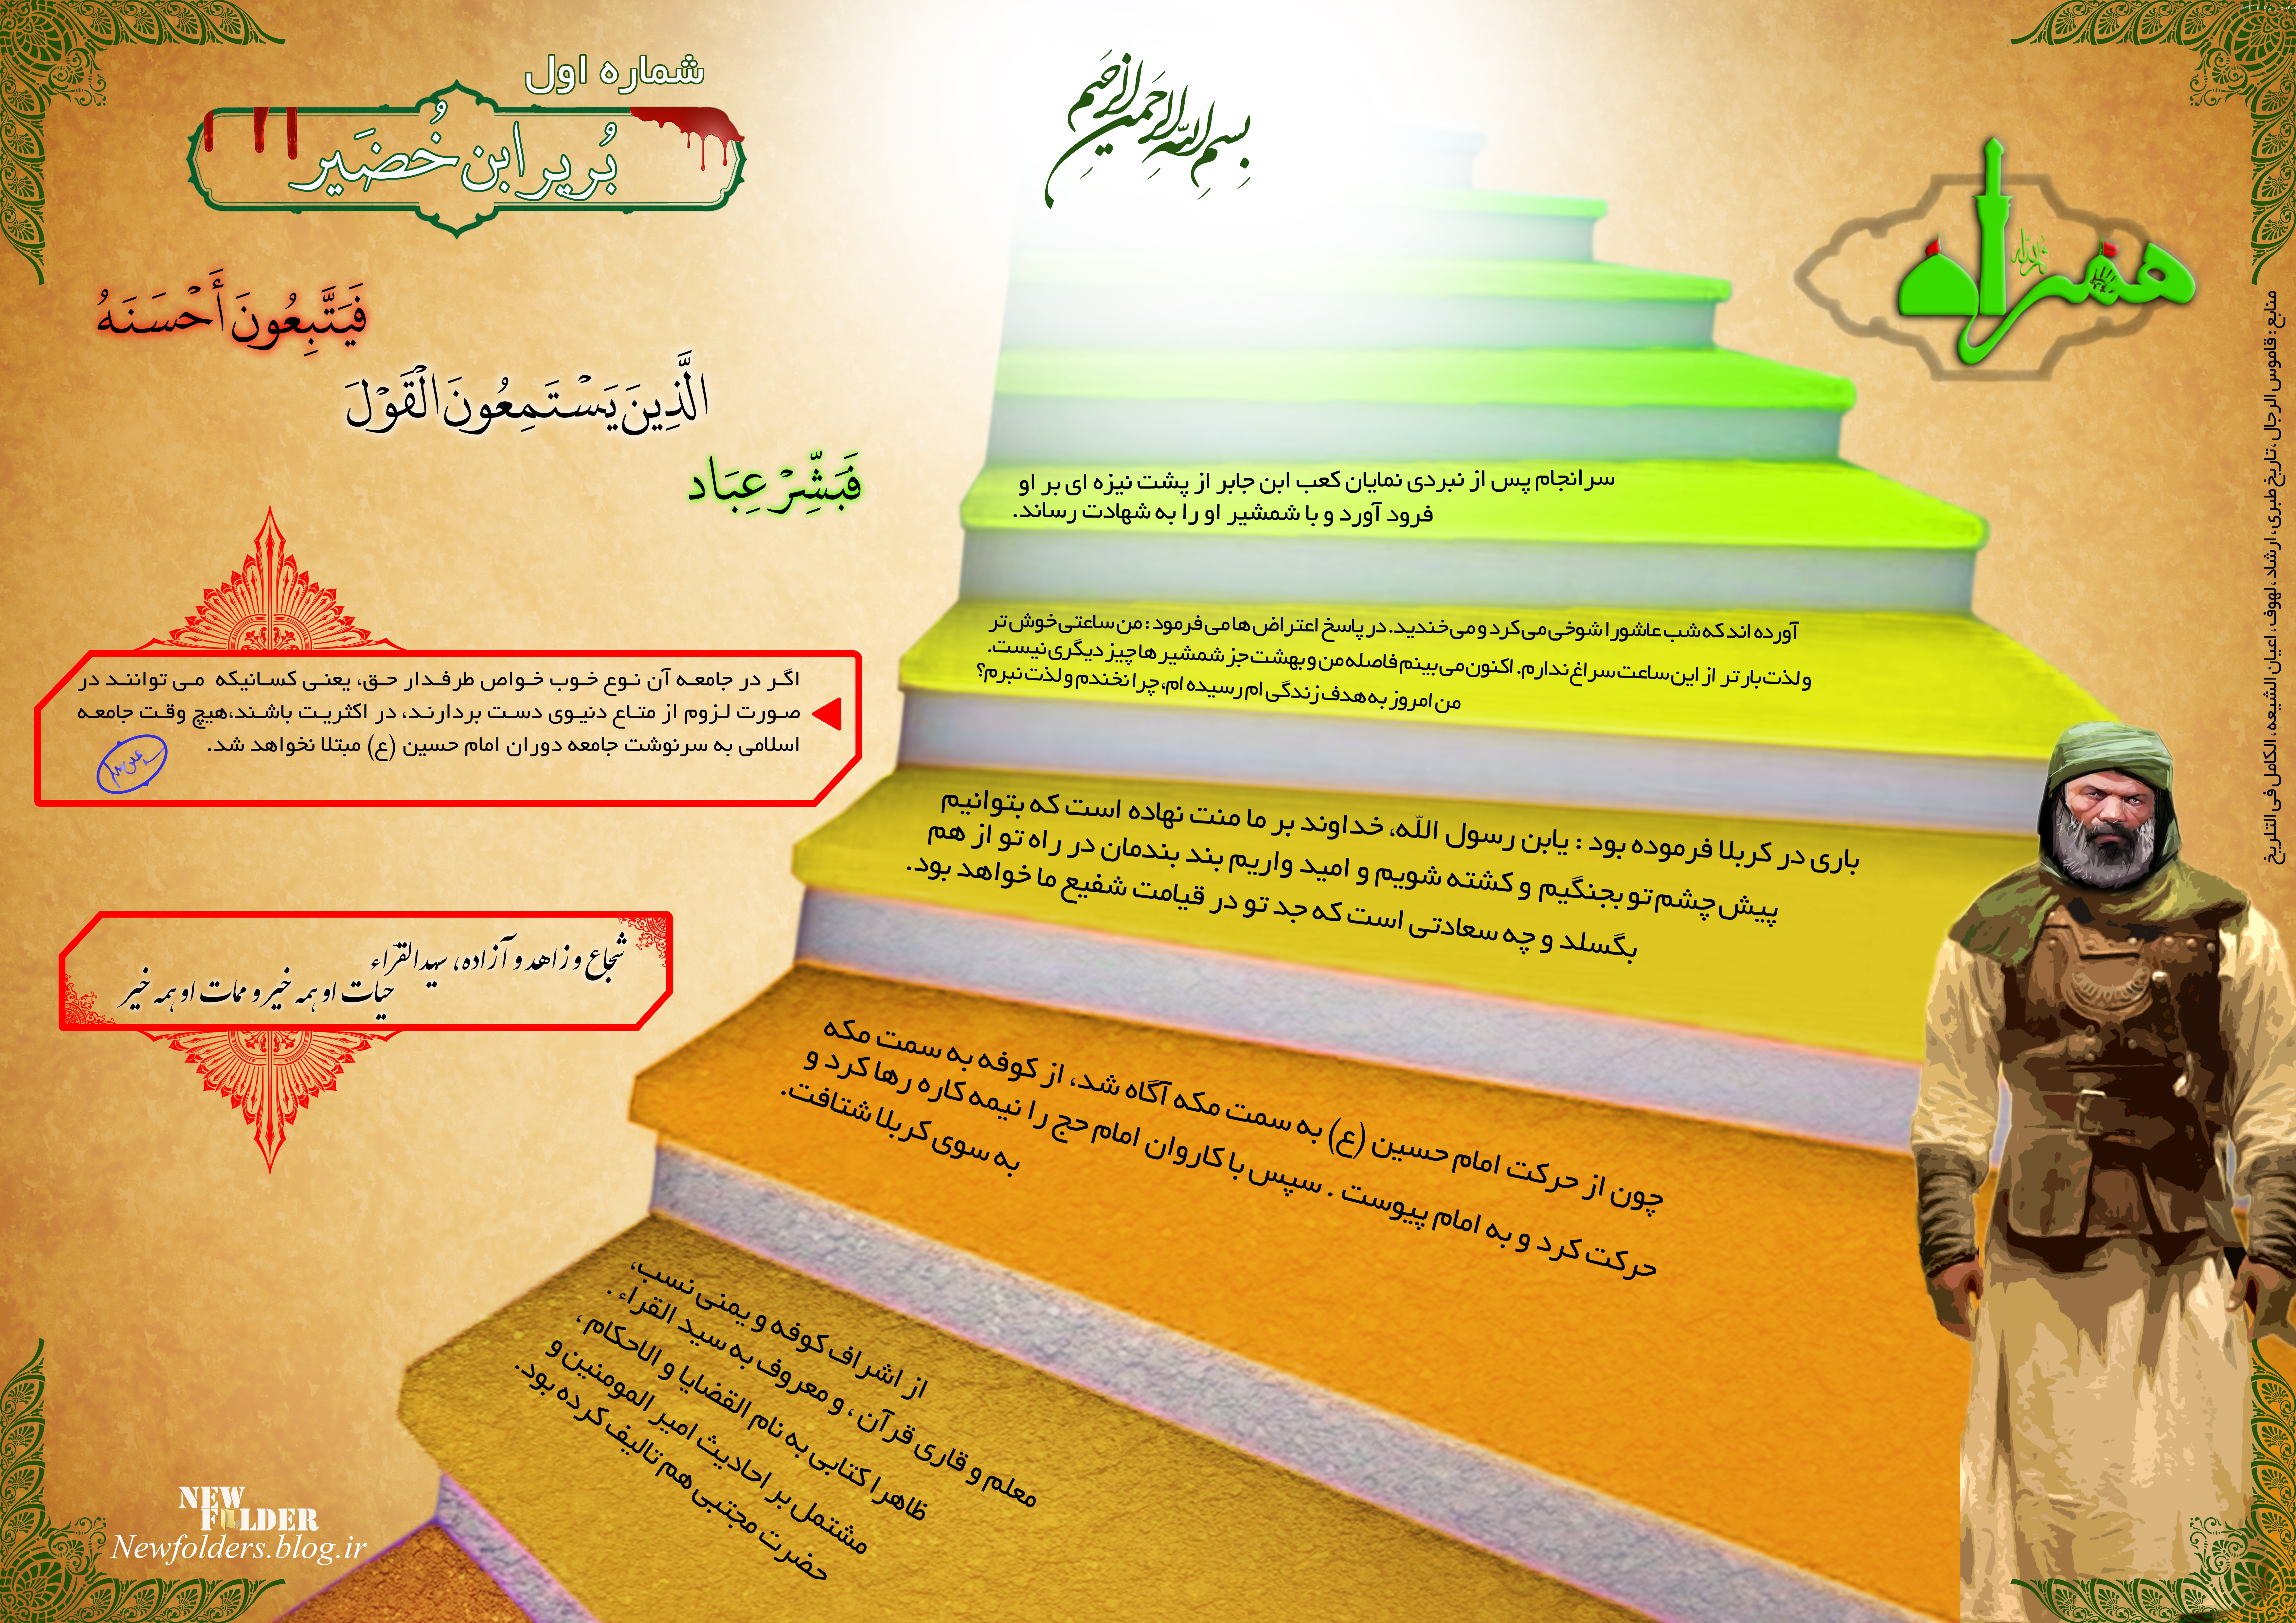 بِسْمِ اللّهِ الرَّحْمنِ الرَّحِيمِ
شماره اول
بُریر ابن خُضَیر
فَبَشِّرْ عِبَاد
الَّذِينَ يَسْتَمِعُونَ الْقَوْلَ
فَيَتَّبِعُونَ أَحْسَنَهُ
اگر در جامعه آن نوع خوب خواص طرفدار حق، یعنی کسانیکه می توانند در
صورت لزوم از متاع دنیوی دست بردارند، در اکثریت باشند،هیچ وقت جامعه
اسلامی به سرنوشت جامعه دوران امام حسین (ع) مبتلا نخواهد شد.
شجاع و زاهد و آزاده، سیدالقرّاء
حیات او همه خیر و ممات او همه خیر
همراه
سرانجام پس از نبردی نمایان کعب ابن جابر از پشت نیزه ای بر او
فرود آورد و با شمشیر او را به شهادت رساند.
آورده اند که شب عاشورا شوخی می کرد و می خندید. در پاسخ اعتراض ها می فرمود : من ساعتی خوش تر
و لذت بار تر از این ساعت سراغ ندارم. اکنون می بینم فاصله من و بهشت جز شمشیر ها چیز دیگری نیست.
من امروز به هدف زندگی ام رسیده ام، چرا نخندم و لذت نبرم؟
باری در کربلا فرموده بود : یابن رسول اللّه، خداوند بر ما منت نهاده است که بتوانیم
پیش چشم تو بجنگیم و کشته شویم و امید واریم بند بندمان در راه تو از هم
بگسلد و چه سعادتی است که جد تو در قیامت شفیع ما خواهد بود.
چون از حرکت امام حسین (ع) به سمت مکه آگاه شد، از کوفه به سمت مکه
حرکت کرد و به امام پیوست . سپس با کاروان امام حج را نیمه کاره رها کرد و
به سوی کربلا شتافت.
از اشراف کوفه و یمنی نسب،
معلم و قاری قرآن ، و معروف به سید القراء .
ظاهرا کتابی به نام القضایا و الاحکام ،
مشتمل بر احادیث امیر المومنین و
حضرت مجتبی هم تالیف کرده بود.
منابع : قاموس الرجال ، تاریخ طبری ، ارشاد ، لهوف ، اعیان الشیعه، الکامل فی التلریخ
NEW
FOLDER
Newfolders.blog.ir